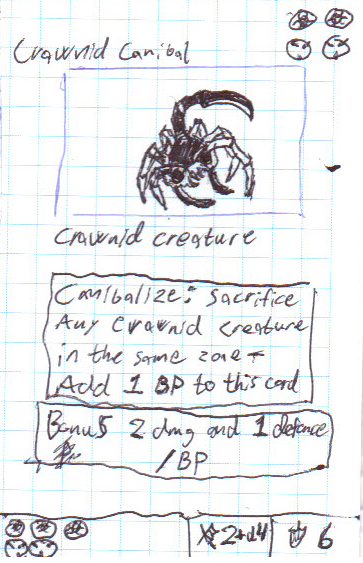 Crawnid Canibal
Crawnid creature
Canibalize: sacrifice
Any Crawnid creature
in the same zone -
Add 1 BP to this card
Bonus 2 dmg and 1 defance
/BP
2+d4 6